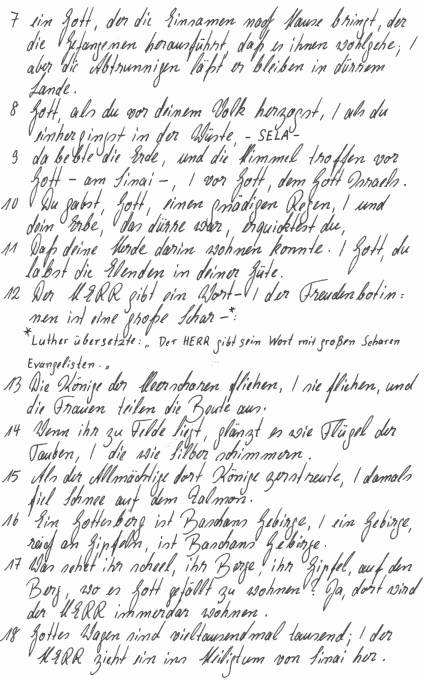 7 ein Gott, der die Einsamen nach Hause bringt, der
die Gefangenen herausführt, daß es ihnen wohlgehe; |
aber die Abtrünnigen läßt er bleiben in dürrem
Lande.
8 Gott, als du vor deinem Volk herzogst, | als du
einhergingst in der Wüste, - SELA -
9 da bebte die Erde, und die Himmel troffen vor
Gott - am Sinai -, | vor Gott, dem Gott Israels.
10 Du gabst, Gott, einen gnädigen Regen, | und
dein Erbe, das dürre war, erquicktest du,
11 Daß deine Herde darin wohnen konnte. | Gott, du
labst die Elenden in deiner Güte.
12 Der HERR gibt ein Wort - | der Freudenbotin=
nen ist eine große Schar -*:
* Luther übersetzte: „Der HERR gibt sein Wort mit großen Scharen
Evangelisten."
13 Die Könige der Heerscharen fliehen, | sie fliehen, und
die Frauen teilen die Beute aus.
14 Wenn ihr zu Felde liegt, glänzt es wie Flügel der
Tauben, | die wie Silber schimmern.
15 Als der Allmächtige dort Könige zerstreute, | damals
fiel Schnee auf dem Zalmon.
16 Ein Gottesberg ist Baschans Gebirge, | ein Gebirge,
reich an Gipfeln, ist Baschans Gebirge.
17 Was sehet ihr scheel, ihr Berge, ihr Gipfel, auf den
Berg, wo es Gott gefällt zu wohnen? | Ja, dort wird
der HERR immerdar wohnen.
18 Gottes Wagen sind vieltausendmal tausend; | der
HERR zieht ein ins Heiligtum von Sinai her.